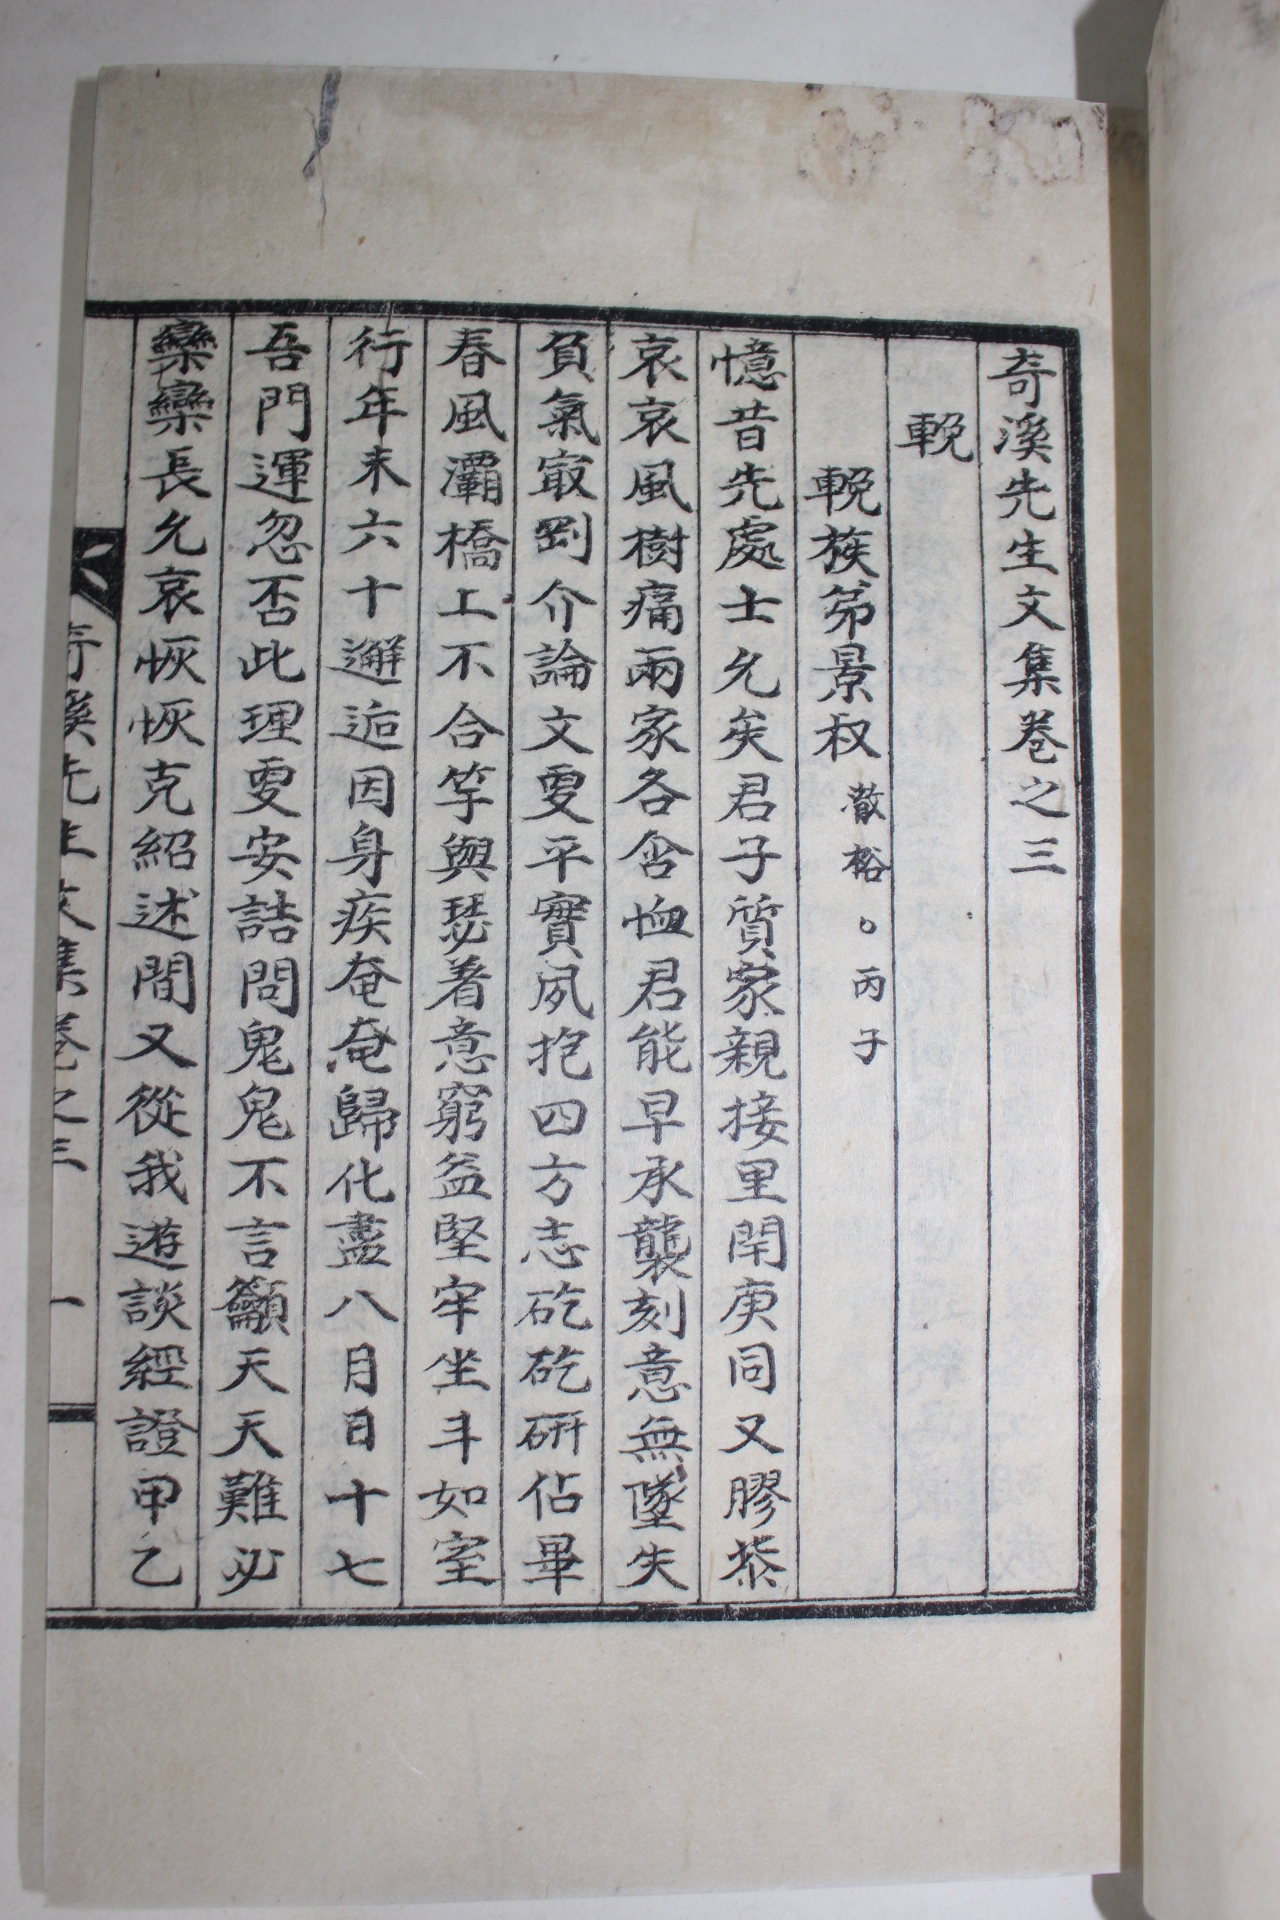 奇溪先生文集卷之三
輓
輓族弟景叔 澈裕○丙子
憶昔先處士允矣君子質家親接里閈庚同又膠㯃
哀哀風樹痛兩家各含恤君能早承襲刻意無墜失
負氣㝡剛介論文更平實夙抱四方志矻矻硏佔畢
春風灞橋上不合竽與瑟着意窮益堅牢坐斗如室
行年未六十邂逅因身疾奄奄歸化盡八月日十七
吾門運忽否此理更安詰問鬼鬼不言籲天天難必
欒欒長允哀恢恢克紹述間又從我遊談經證甲乙
奇溪先生文集卷之三 一